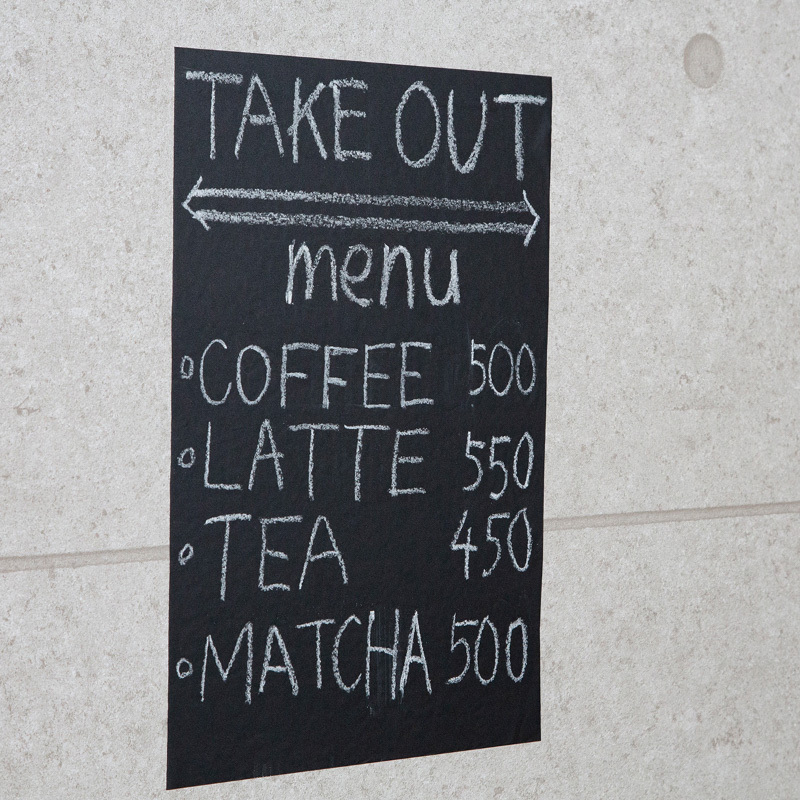 TAKE OUT
menu
COFFEE 500
LATTE 550
TEA 450
MATCHA 500